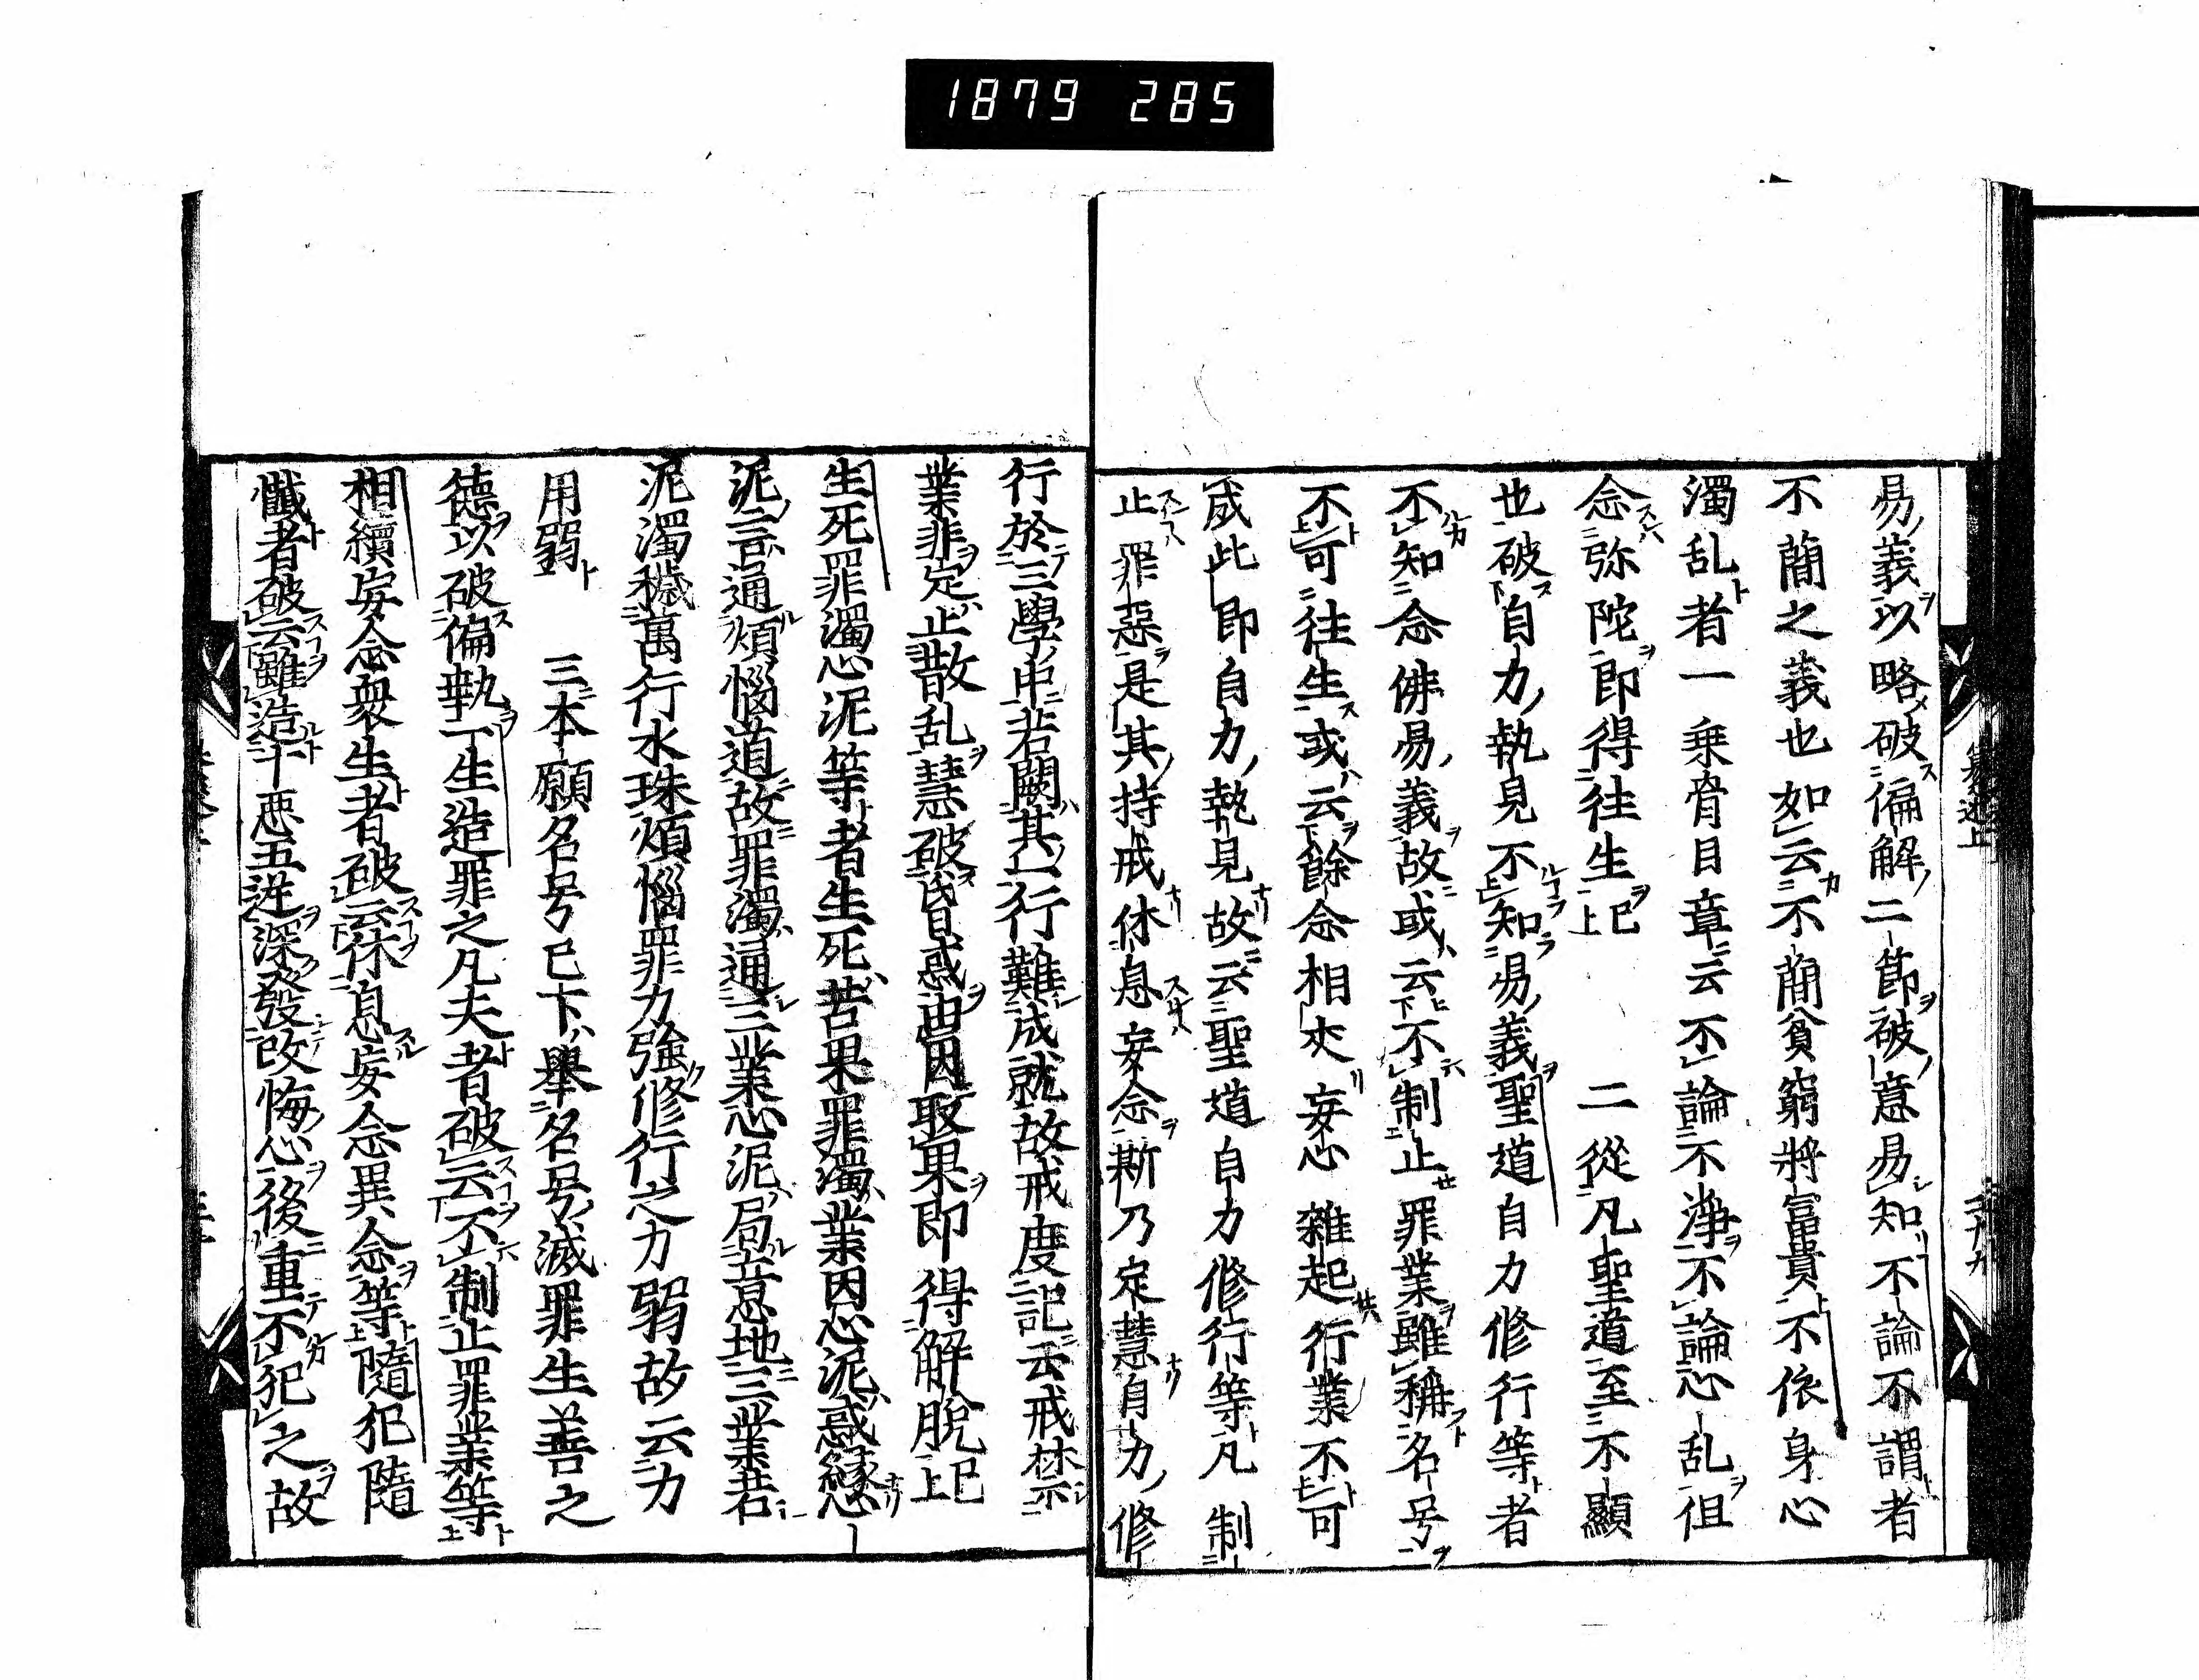 1879 285
易義以略破偏解二節破意易知不論不謂者
不蕳之義也如云不蕳貧窮將富貴不依身心
濁乱者一乗脊目章云不論不淨不論心乱但
念弥陀即得往生已上 二從凡聖道至不顯
也破自力執見不知易義聖道自力修行等者
不知念佛易義故或云不制止罪業雖稱名号
不可往生或云餘念相夾妄心雜起行業不可
成此即自力執見故云聖道自力修行等凡制
止罪惡是其持戒休息妄念斯乃定慧自力修
行於三學中若闕其一行難成就故戒度記云戒禁
業非定止散乱慧破昏惑由因取果即得解脫已上
生死罪濁心泥等者生死苦果罪濁業因心泥惑縁
泥言通煩惱道故罪濁通三業心泥局意地三業若
泥濁穢萬行水珠煩惱罪力強修行之力弱故云力
用弱 三本願名号已下舉名号滅罪生善之
德以破偏執一生造罪之凡夫者破云不制止罪業等
相續妄念衆生者破云休息妄念異念等隨犯隨
懺者破云雖造十悪五逆深發改悔心後重不犯之故